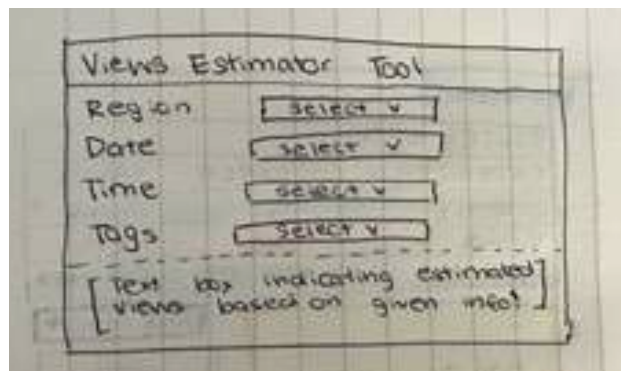 Views Estimator Tool
Region select v
Date select v
Time select v
Tags select v
[Text box indicating estimated
views based on given info!]